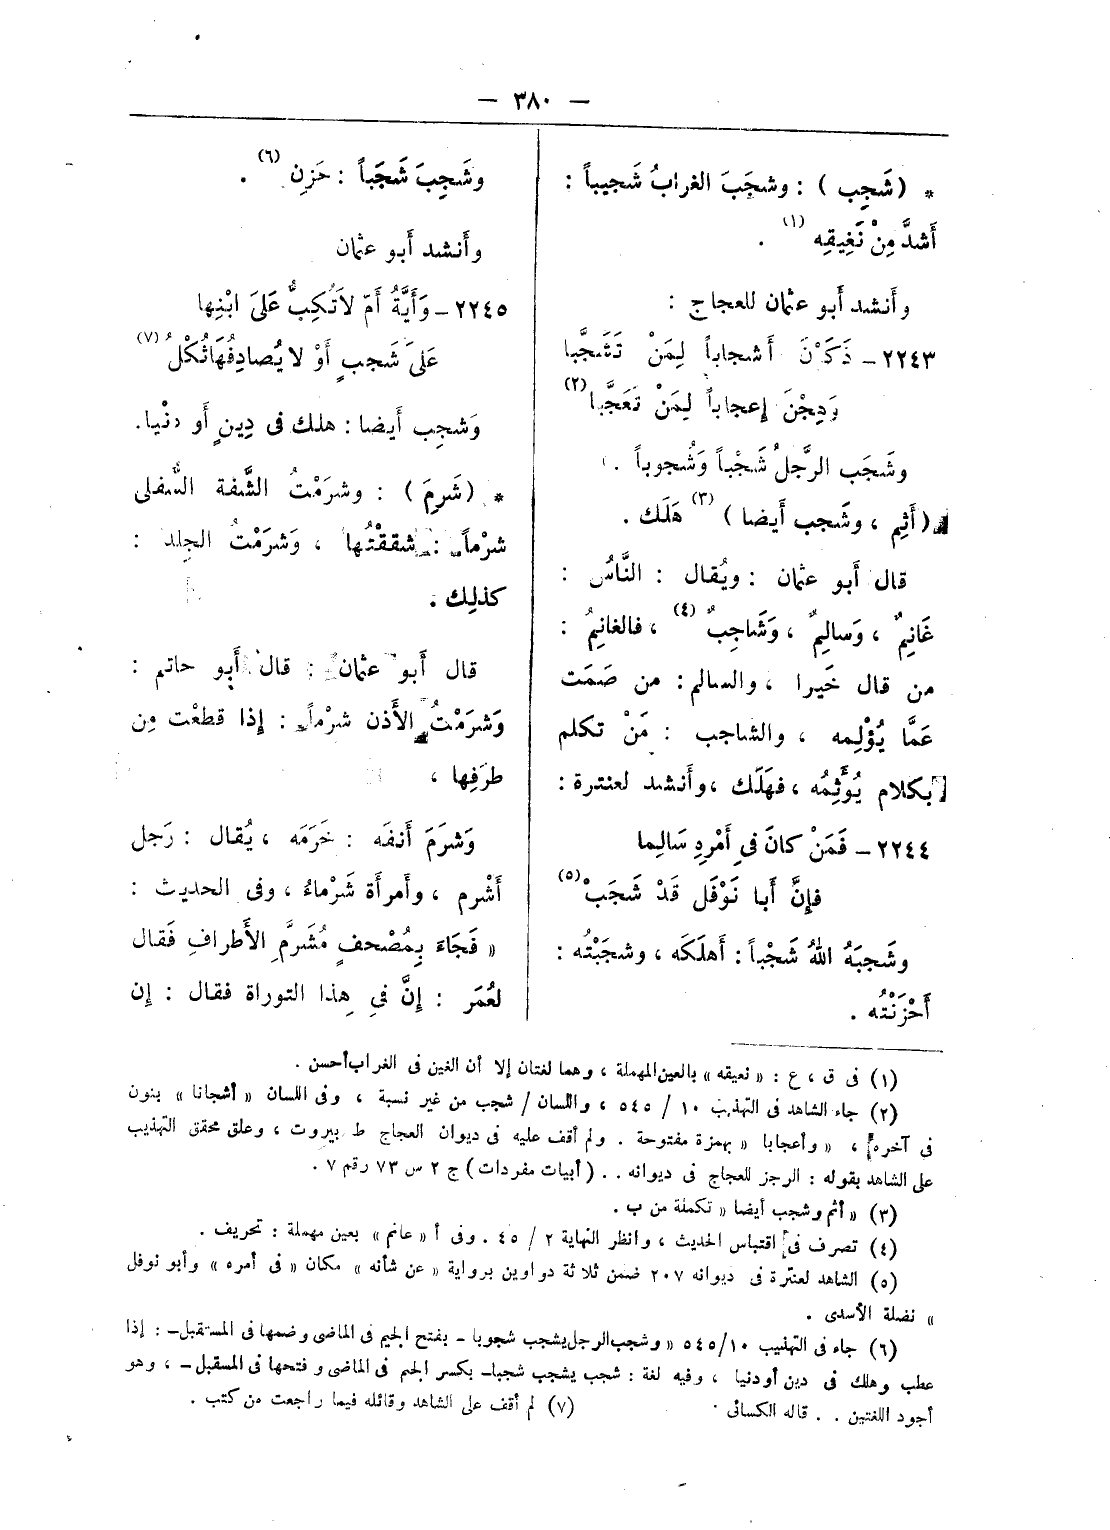 — ٣٨٠ —
* (شَجِب) : وشجَبَ الغرابُ شَجيباً :
أَشدَّ مِنْ نَغِيقِه (١) .
وأَنشد أَبو عثمان للعجاج :
٢٢٤٣ ـ ذَكَرْنَ أَشجاباً لِمَنْ تَشَجَّبا
وَهِجْنَ إِعجاباً لِمَنْ تَعَجَّبا (٢)
وشَجَب الرَّجلُ شَجْباً وَشُجوباً .
(أَثِم ، وشَجب أَيضا) (٣) هَلَك .
قال أَبو عثمان : ويُقال : النَّاسُ :
غَانِمٌ ، وَسالِمٌ ، وَشَاجِبٌ (٤) ، فالغانِمُ :
من قال خَيرا ، والسالم : من صَمَت
عَمَّا يُؤْلِمه ، والشاجب : مَنْ تكلم
بكلام يُوَثِّمُه ، فهَلَك ، وأَنشد لعنترة :
٢٢٤٤ ـ فَمَنْ كانَ فى أَمْرِهِ سَالِما
فإِنَّ أَبا نَوْفَل قَدْ شَجَبْ (٥)
وشَجبَهُ اللهُ شَجْباً : أَهلَكَه ، وشجَبْتُه :
أَحْزَنْتُه .
وشَجِبَ شَجَباً : حَزِن (٦) .
وأَنشد أَبو عثمان
٢٢٤٥ ـ وَأَيَّةُ أُمّ لاَتُكِبُّ عَلَى ابْنِها
عَلَى شَجبٍ أَوْ لا يُصادِفُهَا ثُكْلُ (٧)
وَشجِب أَيضا : هلك فى دِينٍ أَو دنْيا.
* (شَرِمَ) : وشرَمْتُ الشَّفة السُّفلى
شرْماً : شققْتُها ، وَشرَمْتُ الجلد :
كذلِك .
قال أَبو عثمان : قال أَبو حاتم :
وَشرَمْتُ الأُذن شرْماً : إِذا قطعْت مِن
طرَفِها ،
وَشرَمَ أَنفَه : خَرَمَه ، يُقال : رَجل
أَشْرم ، وأَمرأَة شَرْماءُ ، وفى الحديث :
« فَجَاءَ بِمُصْحفٍ مُشَرَّمِ الأَطرافِ فَقال
لعُمَر : إِنَّ فى هذا التوراة فقال : إِن
(١) فى ق ، ع : « نعيقه » بالعين المهملة ، وهما لغتان إلا أن الغين فى الغراب أحسن .
(٢) جاء الشاهد فى التهذيب ١٠ / ٥٤٥ ، واللسان / شجب من غير نسبة ، وفى اللسان « أشجانا » بنون
فى آخره ، « وأعجابا » بهمزة مفتوحة . ولم أقف عليه فى ديوان العجاج ط بيروت ، وعلق محقق التهذيب
على الشاهد بقوله : الرجز للعجاج فى ديوانه . . (أبيات مفردات) ج ٢ س ٧٣ رقم ٧ .
(٣) « أثم وشجب أيضا » تكملة من ب .
(٤) تصرف فى اقتباس الحديث ، وانظر النهاية ٢ / ٤٥ . وفى أ « عانم » بعين مهملة : تحريف .
(٥) الشاهد لعنترة فى ديوانه ٢٠٧ ضمن ثلاثة دواوين برواية « عن شأنه » مكان « فى أمره » وأبو نوفل
» نضلة الأسدى .
(٦) جاء فى التهذيب ٥٤٥/١٠ « وشجب الرجل يشجب شجوبا ـ بفتح الجيم فى الماضى وضمها فى المستقبل ـ : إذا
عطب وهلك فى دين أو دنيا ، وفيه لغة : شجب يشجب شجبا ـ بكسر الجيم فى الماضى وفتحها فى المستقبل ـ ، وهو
أجود اللغتين . . قاله الكسائى .
(٧) لم أقف على الشاهد وقائله فيما راجعت من كتب .